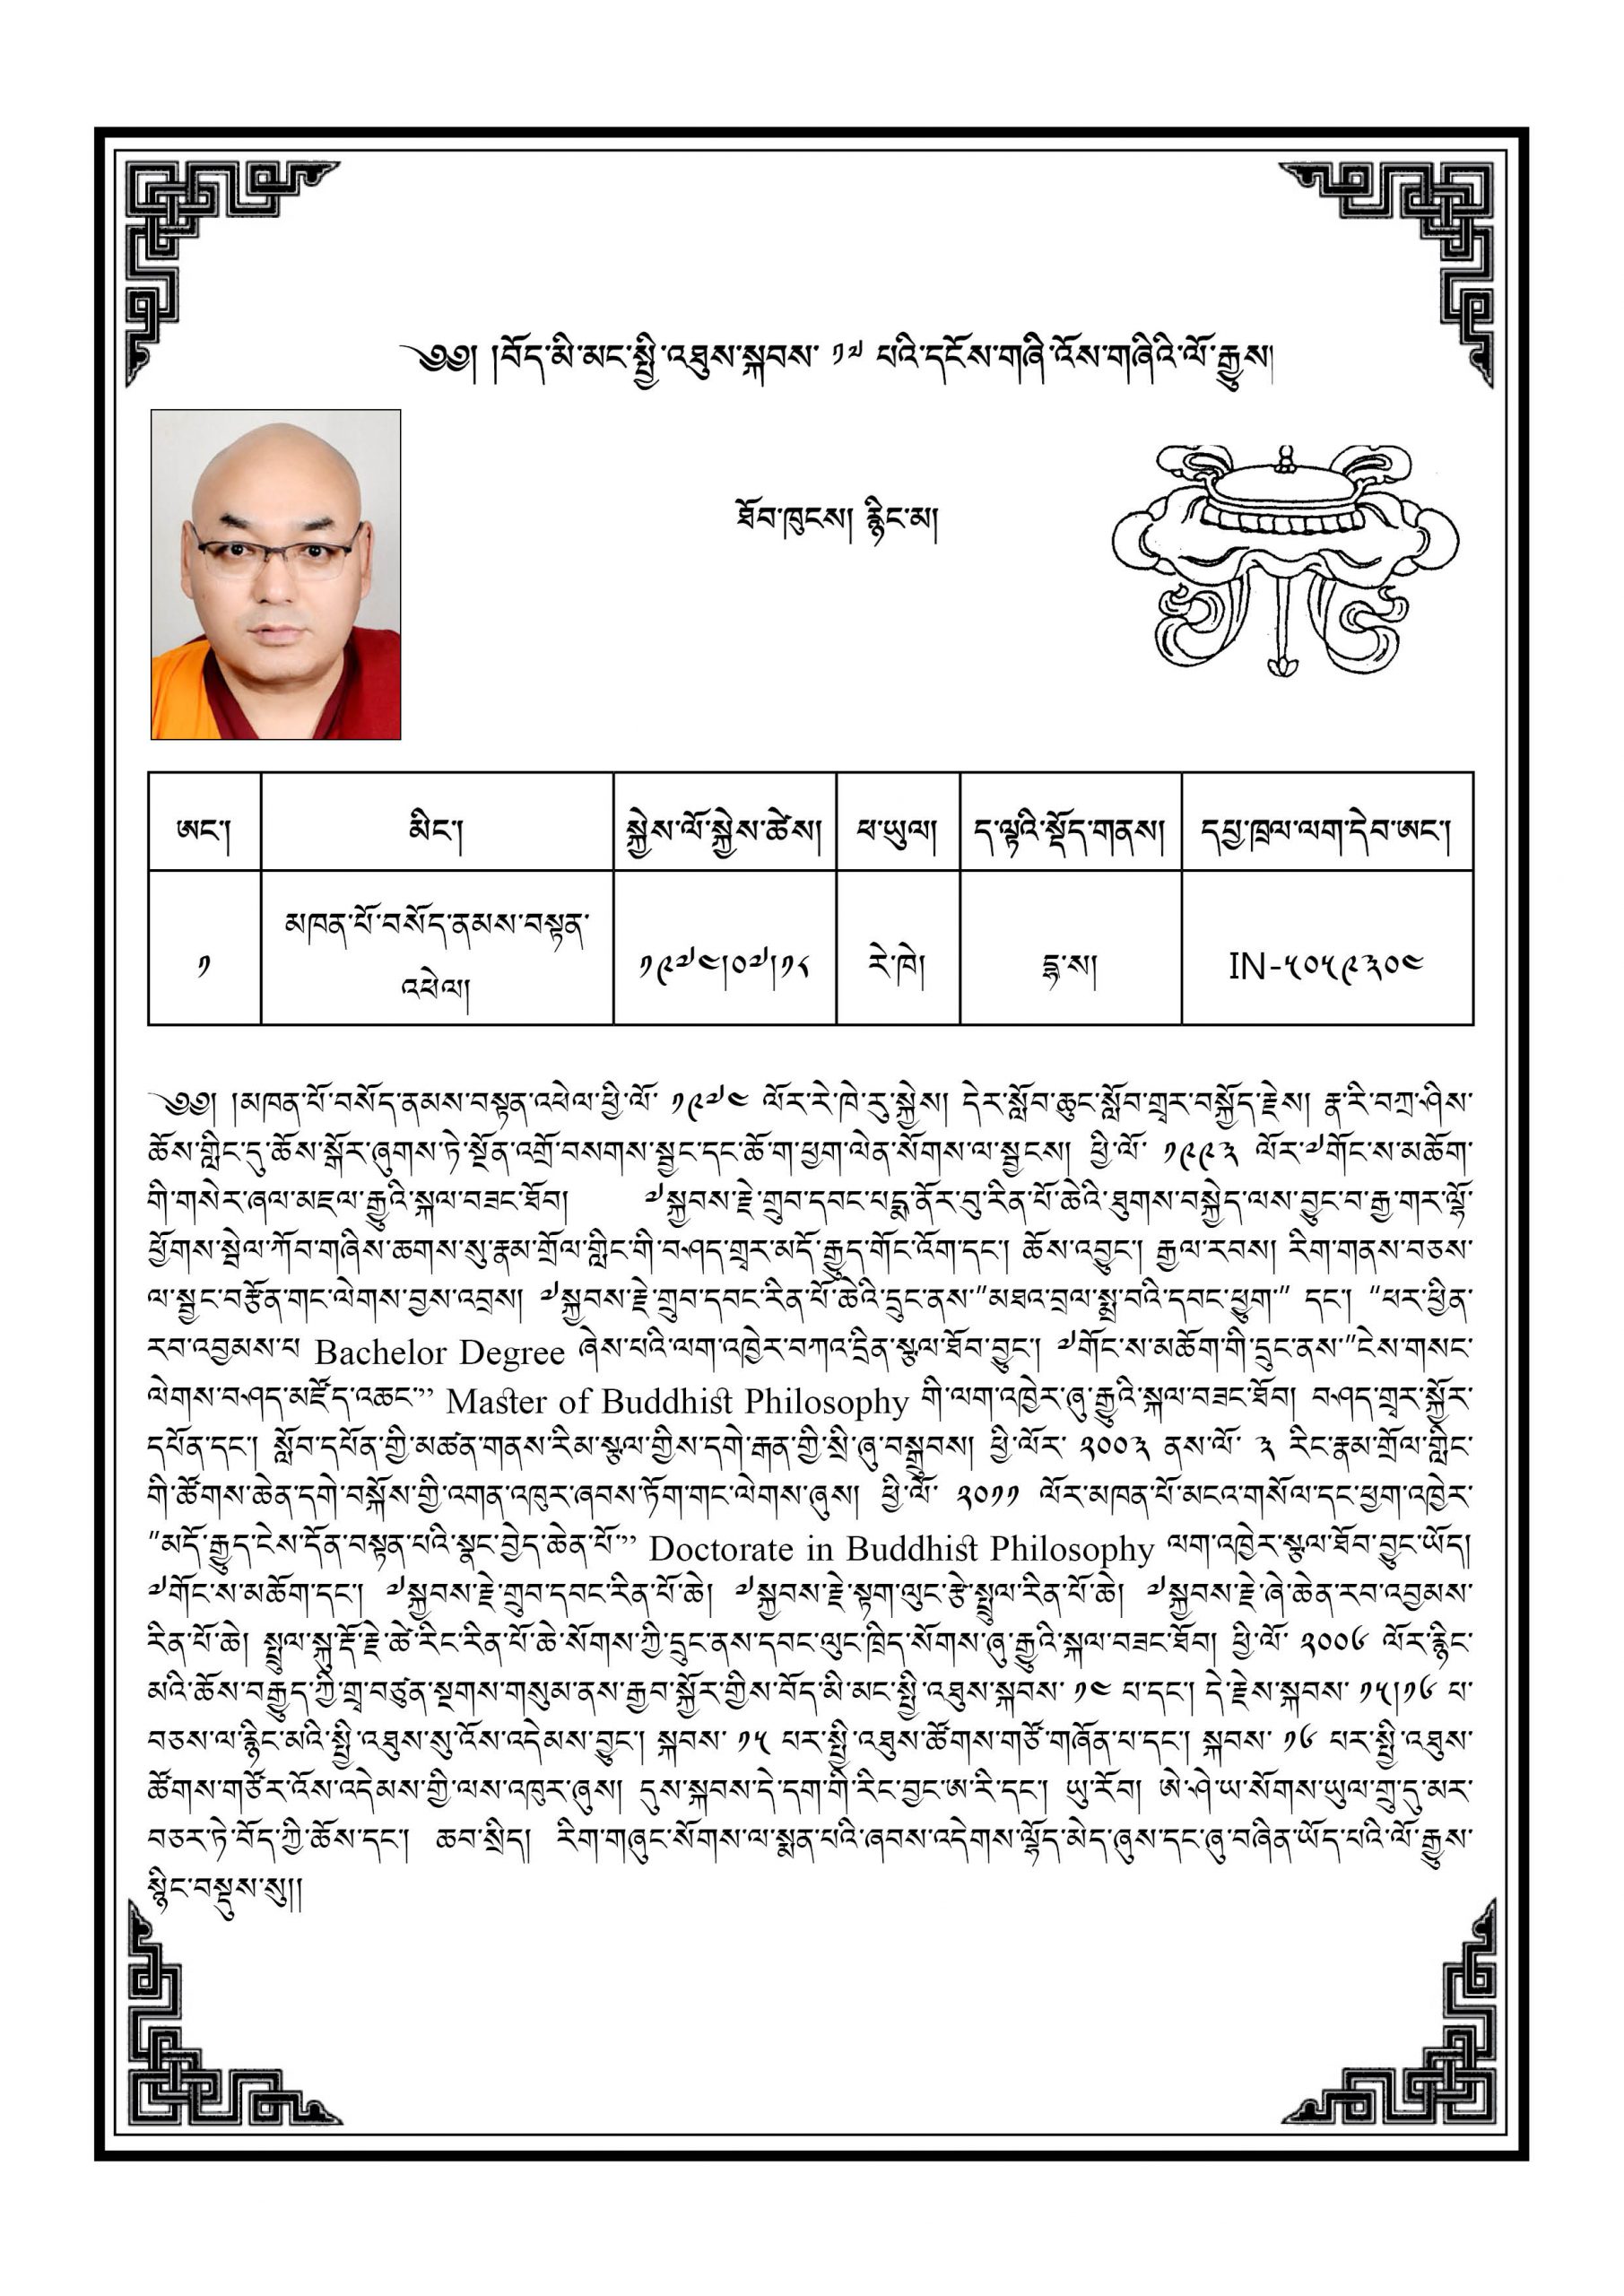 ༄༅། །བོད་མི་མང་སྤྱི་འཐུས་སྐབས་ ༡༧ པའི་དངོས་གཞི་འོས་གཞིའི་ལོ་རྒྱུས།
ཐོབ་ཁུངས། རྙིང་མ།
ཨང་། མིང་། སྐྱེས་ལོ་སྐྱེས་ཚེས། ཕ་ཡུལ། ད་ལྟའི་སྡོད་གནས། དཔྱ་ཁྲལ་ལག་དེབ་ཨང་།
༡ མཁན་པོ་བསོད་ནམས་བསྟན་
འཕེལ། ༡༩༧༤།༠༧།༡༨ རེ་ཁེ། དྷ་ས། IN-༥༠༥༩༣༠༤
༄༅། །མཁན་པོ་བསོད་ནམས་བསྟན་འཕེལ་ཕྱི་ལོ་ ༡༩༧༤ ལོར་རེ་ཁེ་རུ་སྐྱེས། དེར་སློབ་ཆུང་སློབ་གྲྭར་བསྐྱོད་རྗེས། རྣ་རི་བཀྲ་ཤིས་
ཆོས་གླིང་དུ་ཆོས་སྒོར་ཞུགས་ཏེ་སྔོན་འགྲོ་བསགས་སྦྱང་དང་ཆོ་ག་ཕྱག་ལེན་སོགས་ལ་སྦྱངས། ཕྱི་ལོ་ ༡༩༩༣ ལོར་༧གོང་ས་མཆོག་
གི་གསེར་ཞལ་མཇལ་རྒྱུའི་སྐལ་བཟང་ཐོབ། ༧སྐྱབས་རྗེ་གྲུབ་དབང་པདྨ་ནོར་བུ་རིན་པོ་ཆེའི་ཐུགས་བསྐྱེད་ལས་བྱུང་བ་རྒྱ་གར་ལྷོ་
ཕྱོགས་སྦེལ་ཀོབ་གཞིས་ཆགས་སུ་རྣམ་གྲོལ་གླིང་གི་བཤད་གྲྭར་མདོ་རྒྱུད་གོང་འོག་དང་། ཆོས་འབྱུང་། རྒྱལ་རབས། རིག་གནས་བཅས་
ལ་སྦྱང་བརྩོན་གང་ལེགས་བྱས་འབྲས། ༧སྐྱབས་རྗེ་གྲུབ་དབང་རིན་པོ་ཆེའི་དྲུང་ནས་"མཐའ་བྲལ་སྨྲ་བའི་དབང་ཕྱུག་" དང་། "ཕར་ཕྱིན་
རབ་འབྱམས་པ Bachelor Degree ཞེས་པའི་ལག་འཁྱེར་བཀའ་དྲིན་སྩལ་ཐོབ་བྱུང་། ༧གོང་ས་མཆོག་གི་དྲུང་ནས་"ངེས་གསང་
ལེགས་བཤད་མཛོད་འཆང་" Master of Buddhist Philosophy གི་ལག་འཁྱེར་ཞུ་རྒྱུའི་སྐལ་བཟང་ཐོབ། བཤད་གྲྭར་སྐྱོར་
དཔོན་དང་། སློབ་དཔོན་གྱི་མཚན་གནས་རིམ་སྩལ་གྱིས་དགེ་རྒན་གྱི་སྲི་ཞུ་བསྒྲུབས། ཕྱི་ལོར་ ༢༠༠༣ ནས་ལོ་ ༣ རིང་རྣམ་གྲོལ་གླིང་
གི་ཚོགས་ཆེན་དགེ་བསྐོས་ཀྱི་འགན་འཁུར་ཞབས་ཏོག་གང་ལེགས་ཞུས། ཕྱི་ལོ་ ༢༠༡༡ ལོར་མཁན་པོ་མངའ་གསོལ་དང་ཕྱག་འཁྱེར་
"མདོ་རྒྱུད་ངེས་དོན་བསྟན་པའི་སྣང་བྱེད་ཆེན་པོ་" Doctorate in Buddhist Philosophy ལག་འཁྱེར་སྩལ་ཐོབ་བྱུང་ཡོད།
༧གོང་ས་མཆོག་དང་། ༧སྐྱབས་རྗེ་གྲུབ་དབང་རིན་པོ་ཆེ། ༧སྐྱབས་རྗེ་སྟག་ལུང་རྩེ་སྤྲུལ་རིན་པོ་ཆེ། ༧སྐྱབས་རྗེ་ཞེ་ཆེན་རབ་འབྱམས་
རིན་པོ་ཆེ། སྤྲུལ་སྐུ་རྡོ་རྗེ་ཚེ་རིང་རིན་པོ་ཆེ་སོགས་ཀྱི་དྲུང་ནས་དབང་ལུང་ཁྲིད་སོགས་ཞུ་རྒྱུའི་སྐལ་བཟང་ཐོབ། ཕྱི་ལོ་ ༢༠༠༦ ལོར་རྙིང་
མའི་ཆོས་བརྒྱུད་ཀྱི་གྲྭ་བཙུན་སྔགས་གསུམ་ནས་རྒྱབ་སྐྱོར་གྱིས་བོད་མི་མང་སྤྱི་འཐུས་སྐབས་ ༡༤ པ་དང་། དེ་རྗེས་སྐབས་ ༡༥།༡༦ པ་
བཅས་ལ་རྙིང་མའི་སྤྱི་འཐུས་སུ་འོས་འདེམས་བྱུང་། སྐབས་ ༡༥ པར་སྤྱི་འཐུས་ཚོགས་གཙོ་གཞོན་པ་དང་། སྐབས་ ༡༦ པར་སྤྱི་འཐུས་
ཚོགས་གཙོར་འོས་འདེམས་ཀྱི་ལས་འཁུར་ཞུས། དུས་སྐབས་དེ་དག་གི་རིང་བྱང་ཨ་རི་དང་། ཡུ་རོབ། ཨེ་ཤེ་ཡ་སོགས་ཡུལ་གྲུ་དུ་མར་
བཅར་ཏེ་བོད་ཀྱི་ཆོས་དང་། ཆབ་སྲིད། རིག་གཞུང་སོགས་ལ་སྨན་པའི་ཞབས་འདེགས་ལྷོད་མེད་ཞུས་དང་ཞུ་བཞིན་ཡོད་པའི་ལོ་རྒྱུས་
སྙིང་བསྡུས་སུ།།